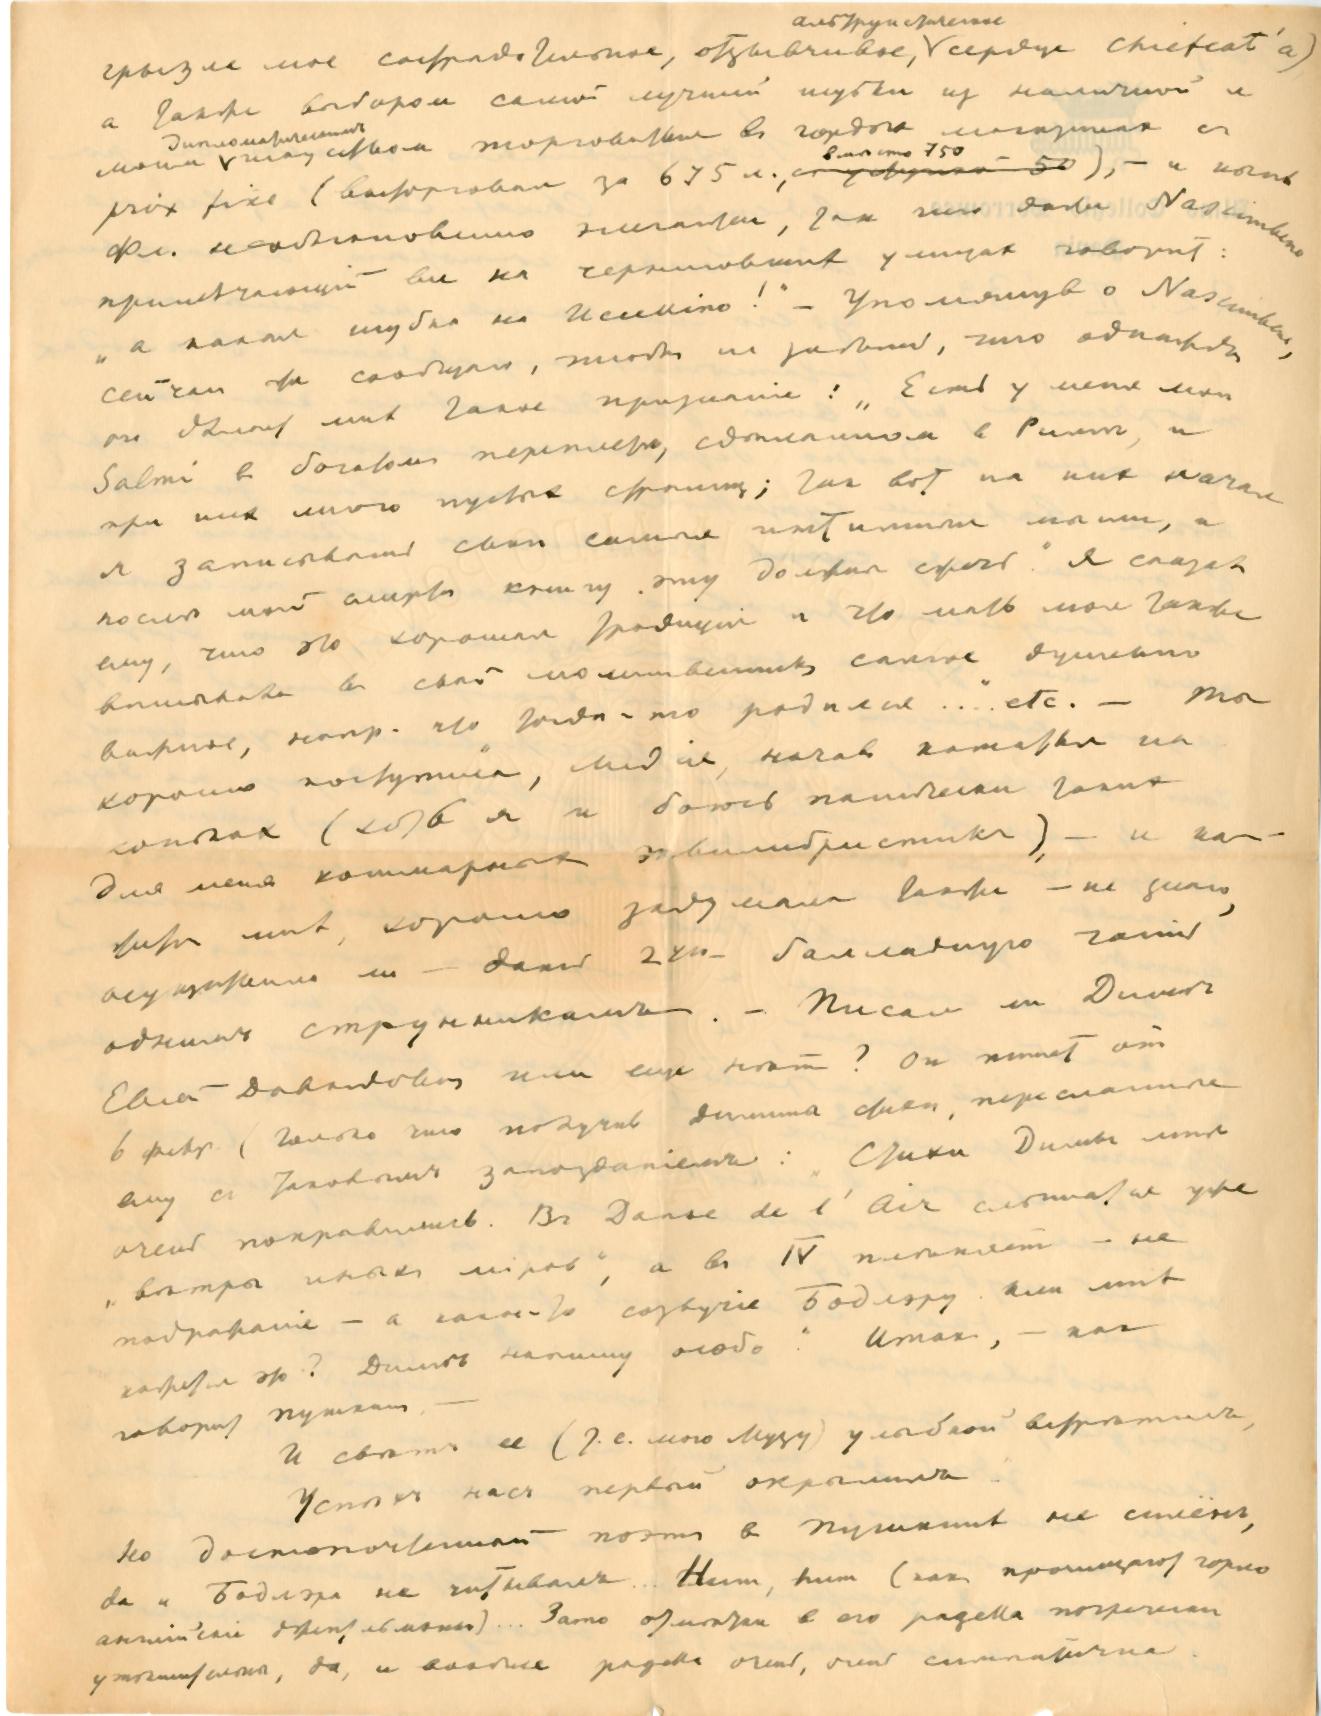 альтруистическое
грызла мое сострадательное, отзывчивое, сердце chiefcat'а)
а также выбором самой лучшей шубки из наличной и
дипломатическим
моим искусством торговаться в гордых магазинах с
вместо 750
prix fixe (выторговал за 675 л., с уступкой 50), — и ныне
Фл. необыкновенно элегантен, так что даже Nascimbene
примечающий ее на улицах говорит:
„а какая шубка на !" — Упомянув о Nascimbene,
сейчас же сообщаю, чтобы не забыть, что однажды
он сделал мне такое признание: „Есть у меня мои
Salmi в богатом переплете, сделанном в Риме, и
при них много пустых страниц; так вот на них начал
я записывать свои самые интимные мысли, а
после моей смерти книгу эту должны сжечь." Я сказал
ему, что это хорошая традиция и что мать моя также
вписывала в свой молитвенник самое душевно
важное, напр. что тогда-то родился ..." etc. — Ты
хорошо поступила, Лидия, начав кататься на
коньках (хотя я и боюсь панически таких
для меня кошмарных эквилибристик), — и ка-
жется мне, хорошо задумала также — не знаю,
осуществимо ли — дать 2ую балладную часть
одним струнникам. — Писал ли Диме
Евсей Давидович или еще нет? Он пишет от
6 февр. (только что получив Димины стихи, пересланные
ему с таковым запозданием: „Стихи Димы мне
очень понравились. В Danse de l'Air слышатся уже
„ветры иных миров", а в IV пленяет — не
подражание — а какое-то созвучие Бодлэру. Или мне
кажется это? Диме напишу особо." Итак, — как
говорит Пушкин, —
И светъ ее (т.е. мою Музу) улыбкой встретилъ,
Успехъ насъ первый окрылилъ.
Но достопочтенный поэт в Пушкине не силён,
да и Бодлэра не читывал... Hem, hem (как прочищают горло
английские джентльмены)... Зато отметки в его pagella
утешительны, да, и вообще pagella очень, очень симпатична.